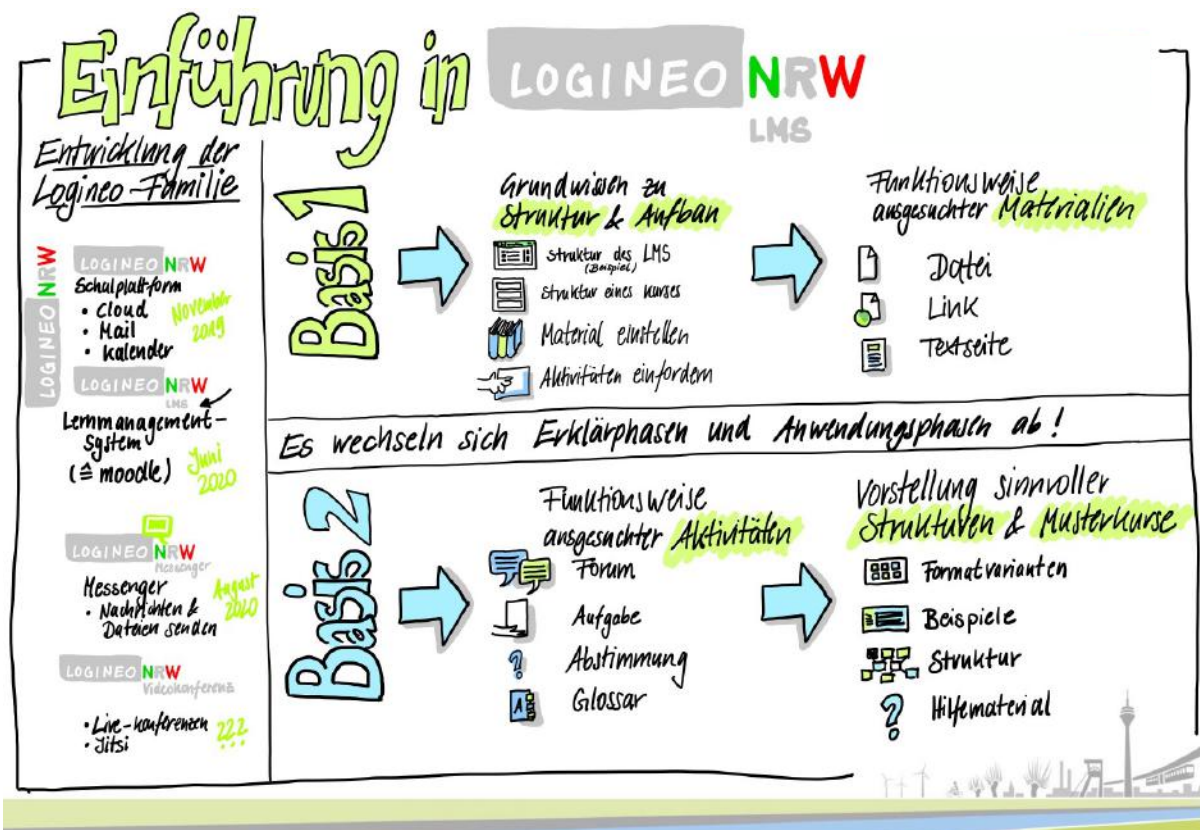 Einführung in LOGINEO NRW
LMS
Entwicklung der
Logineo-Familie
LOGINEO NRW
LOGINEO NRW
Schulplattform
• Cloud
• Mail
• Kalender
November
2019
LOGINEO NRW
LMS
Lernmanagement-
system
(≙ moodle)
Juni
2020
LOGINEO NRW
Messenger
Messenger
• Nachrichten &
Dateien senden
August
2020
LOGINEO NRW
Videokonferenz
• Live-Konferenzen
• Jitsi
???
Basis 1
Grundwissen zu
Struktur & Aufbau
Struktur des LMS
(Beispiel)
Struktur eines Kurses
Material einstellen
Aktivitäten einfordern
Funktionsweise
ausgesuchter Materialien
Datei
Link
Textseite
Es wechseln sich Erklärphasen und Anwendungsphasen ab!
Basis 2
Funktionsweise
ausgesuchter Aktivitäten
Forum
Aufgabe
?
Abstimmung
A
Glossar
Vorstellung sinnvoller
Strukturen & Musterkurse
Formatvarianten
Beispiele
Struktur
?
Hilfematerial